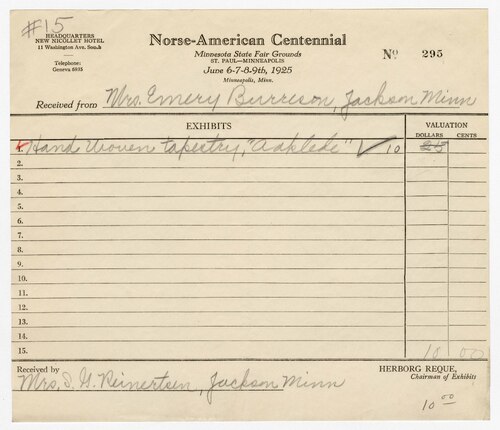 #15
HEADQUARTERS
NEW NICOLLET HOTEL
11 Washington Ave. South
Telephone:
Geneva 6935
Norse-American Centennial
Minnesota State Fair Grounds
ST. PAUL—MINNEAPOLIS
June 6-7-8-9th, 1925
Minneapolis, Minn.
No 295
Received from Mrs. Emery Burreson, Jackson Minn
EXHIBITS VALUATION
DOLLARS CENTS
1. Hand Woven tapestry, "Aaklede" 10 25
2.
3.
4.
5.
6.
7.
8.
9.
10.
11.
12.
13.
14.
15. 10 00
Received by HERBORG REQUE,
Mrs. S. G. Reinertsen, Jackson Minn Chairman of Exhibits
10 00